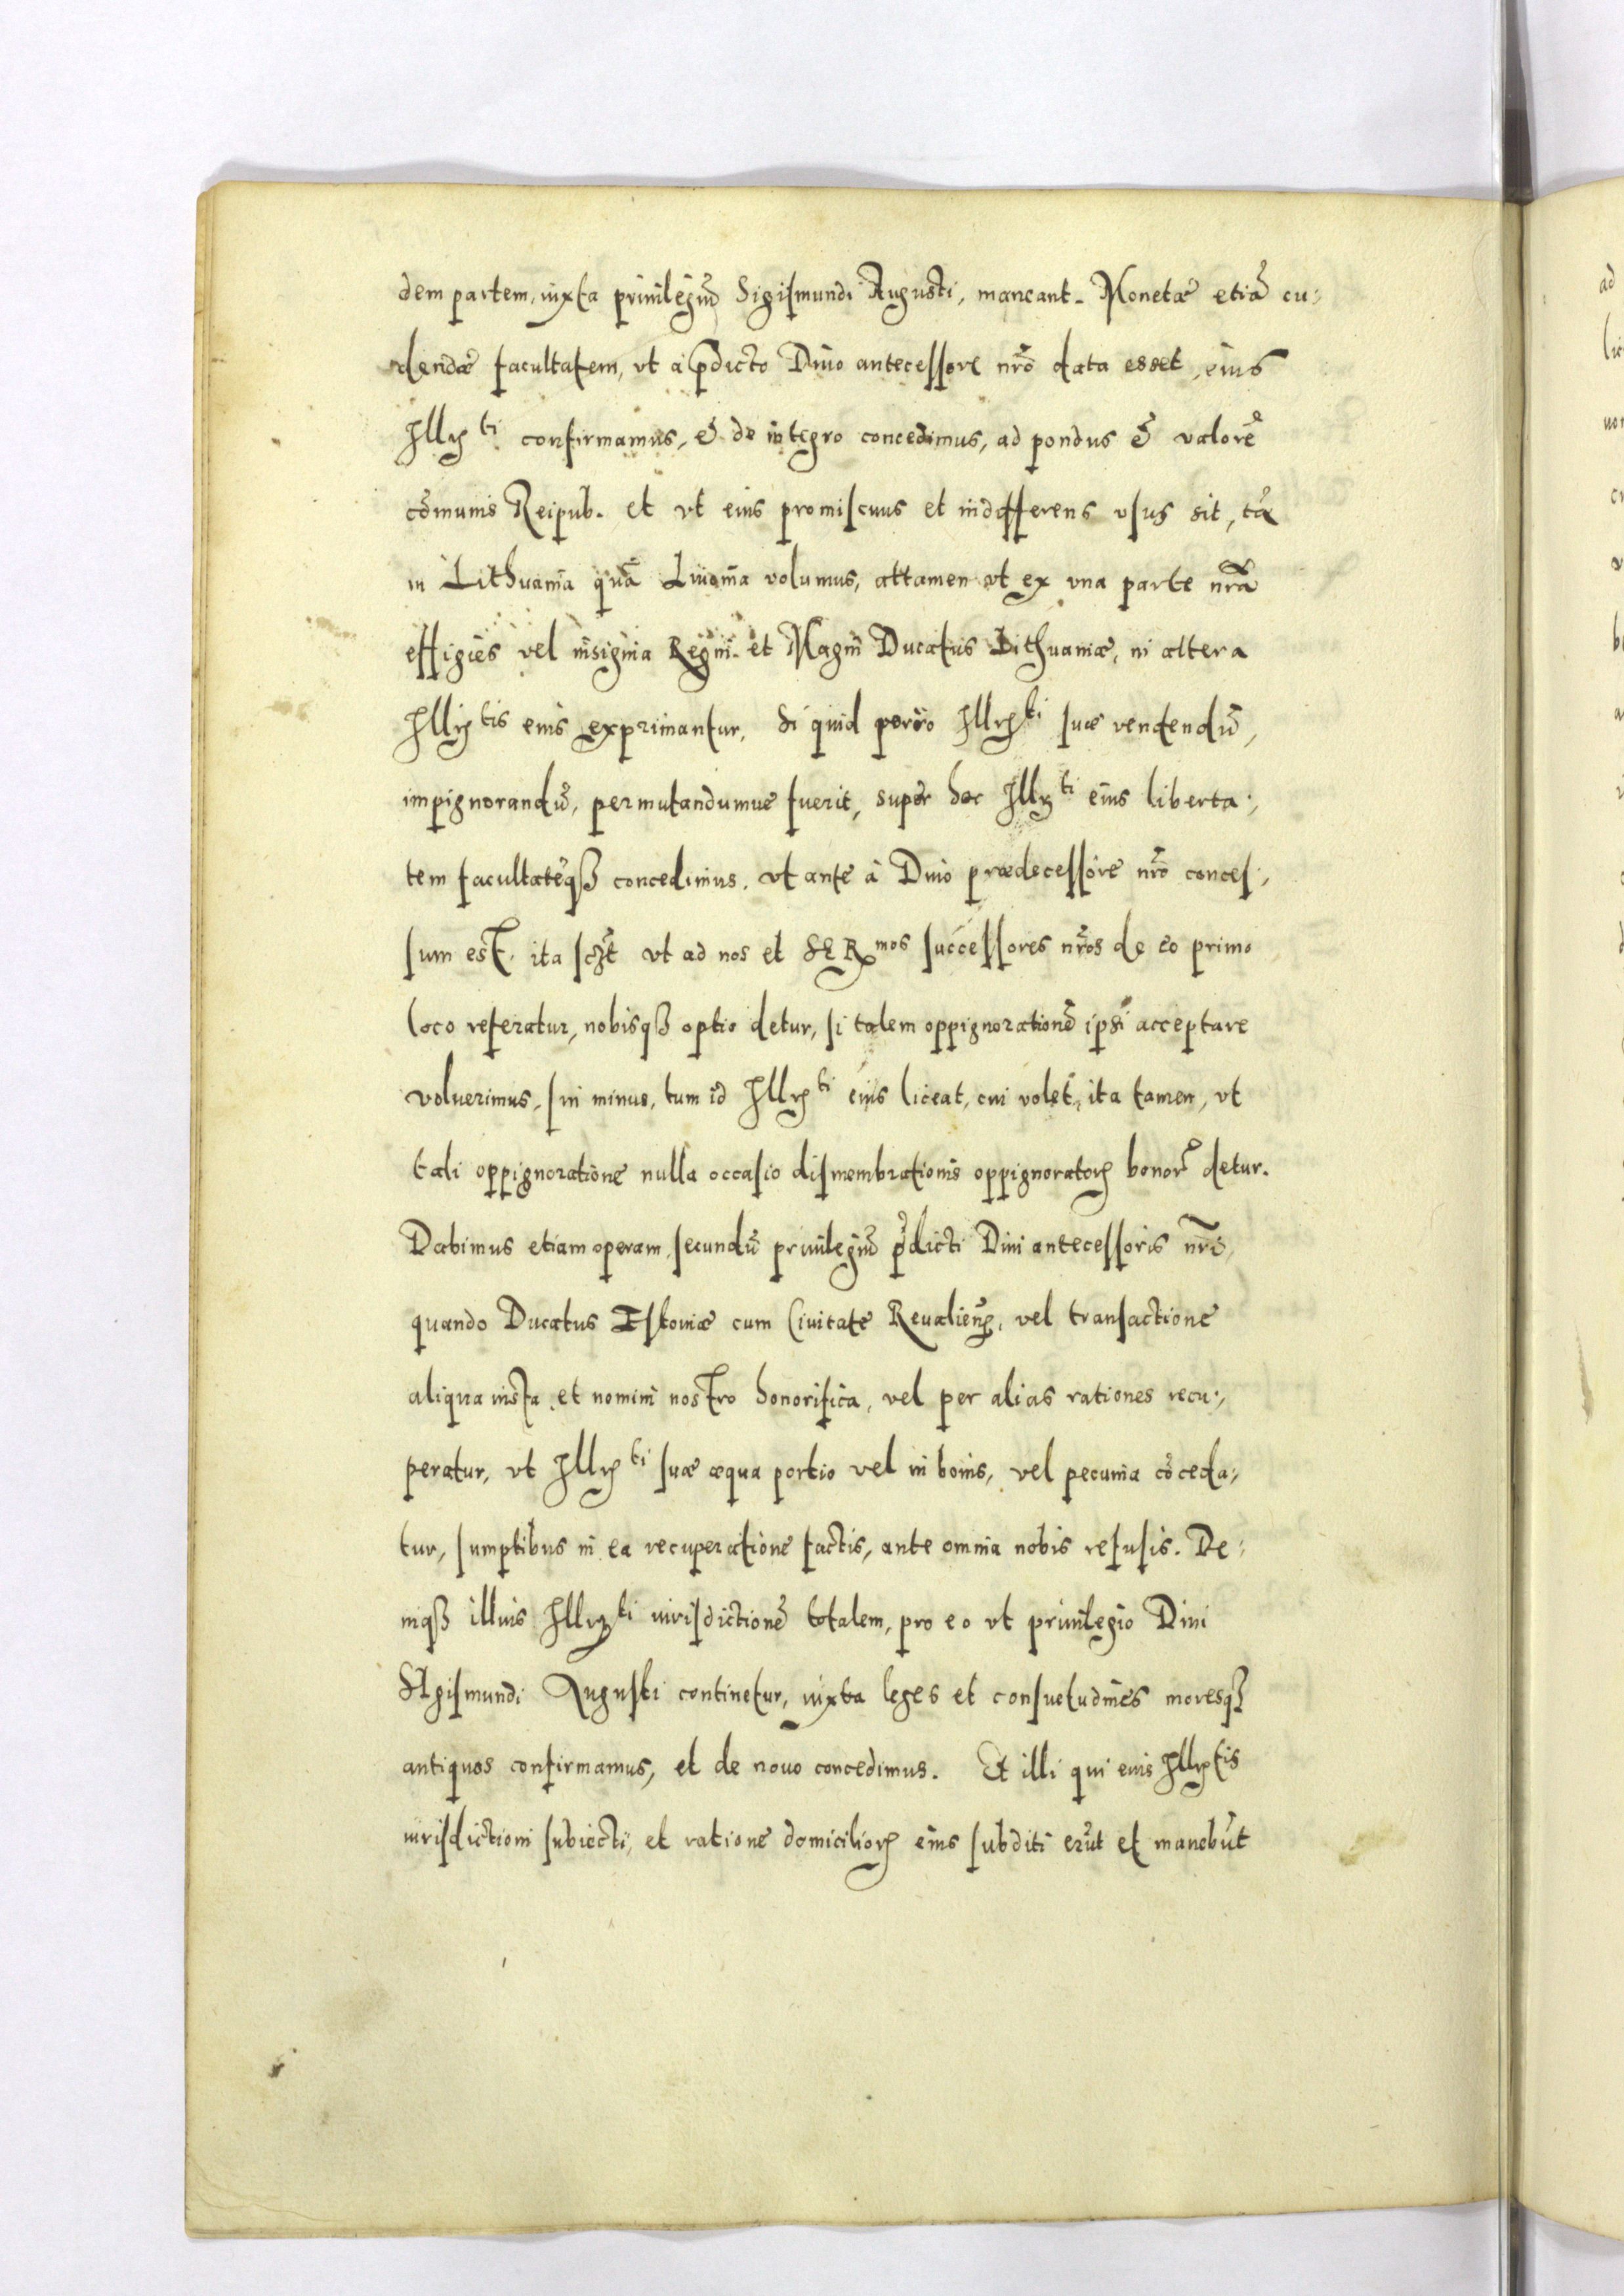 dem partem, iuxta priuilegiũ Sigismundi Augusti, maneant. Monetæ etiã cu:
dendæ facultatem, vt à p̃dicto Diuo antecessore nr̃o data esset, eius
Illr̃ti confirmamus, & de integro concedimus, ad pondus & valorẽ
cõmunis Reipub. et vt eius promiscuus et indifferens vsus sit, tã
in Lithuania quã Liuonia volumus, attamen vt ex vna parte nr̃a
effigies vel insignia Regni et Magni Ducatus Lithuaniæ, in altera
Illr̃tis eius exprimantur. Si quid porrò Illr̃ti suæ vendendũ,
impignorandũ, permutandumue fuerit, super hoc Illr̃ti eius liberta:
tem facultatẽq3 concedimus, vt ante à Diuo prædecessore nr̃o conces:
sum est, ita sc3t vt ad nos et SERmos successores nr̃os de eo primo
loco referatur, nobisq3 optio detur, si talem oppignorationẽ ipsi acceptare
voluerimus, sin minus, tum id Illr̃ti eius liceat, cui volet, ita tamen, vt
tali oppignoratione nulla occasio dismembrationis oppignoratoꝝ bonoꝝ detur.
Dabimus etiam operam, secundũ priuilegiũ p̃dicti Diui antecessoris nr̃i,
quando Ducatus Estoniæ cum Ciuitate Reualieñ, vel transactione
aliqua iusta et nomini nostro honorifica, vel per alias rationes recu:
peratur, vt Illr̃ti suæ æqua portio vel in bonis, vel pecunia cõceda:
tur, sumptibus in ea recuperatione factis, ante omnia nobis refusis. De:
niq3 illius Illr̃ti iurisdictionẽ totalem, pro eo vt priuilegio Diui
Sigismundi Augusti continetur, iuxta leges et consuetudines moresq3
antiquos confirmamus, et de nouo concedimus. Et illi qui eius Illr̃tis
iurisdictioni subiecti, et ratione domicilioꝝ eius subditi erũt et manebũt